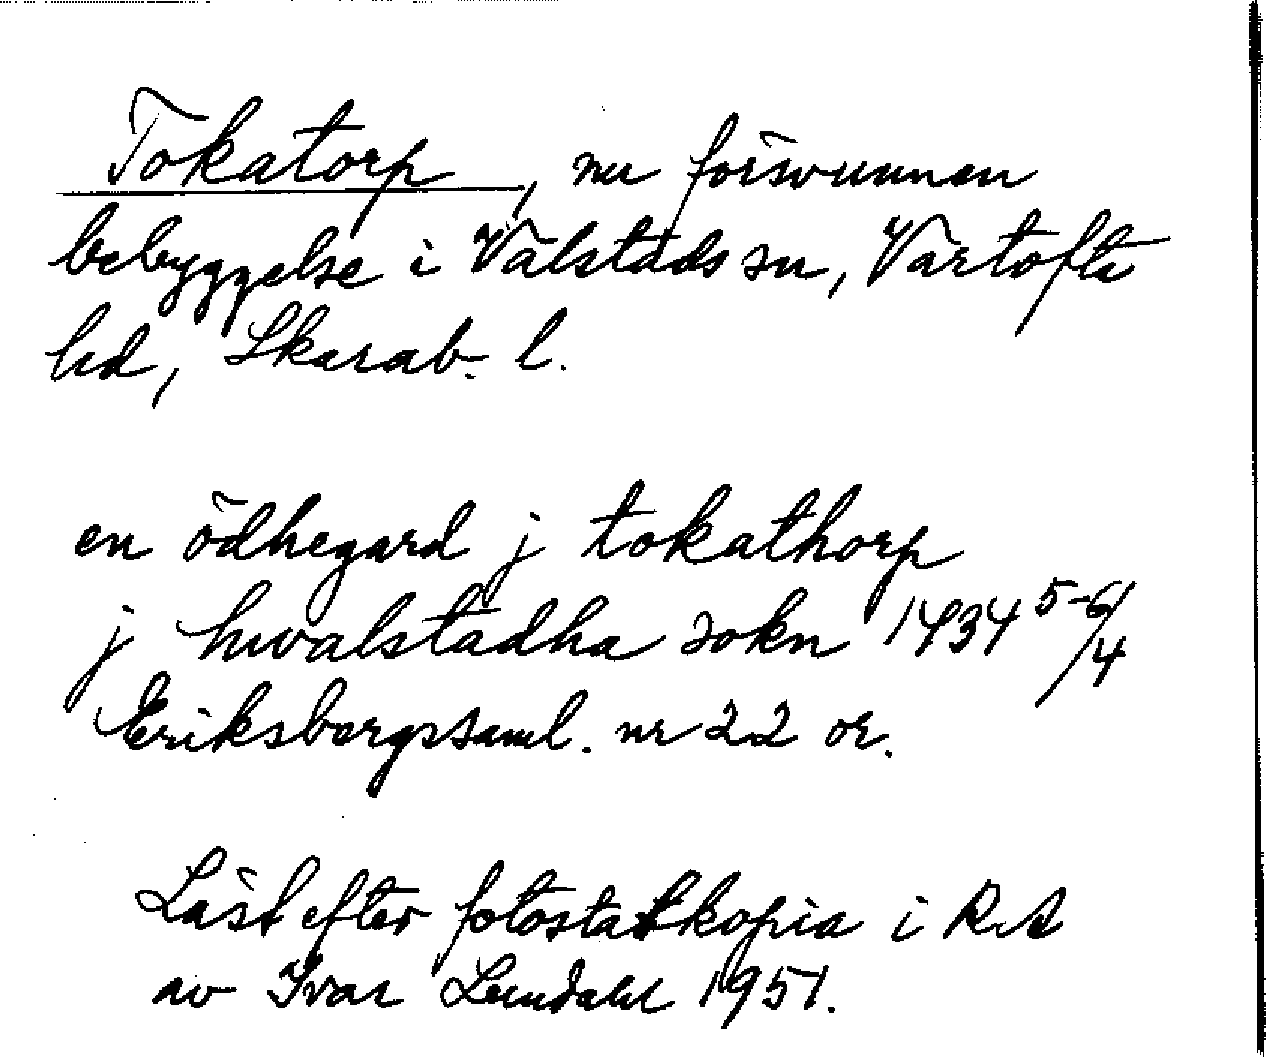 Tokatorp, nu försvunnen
bebyggelse i Vålstads sn, Vartofta
hd, Skarab. l.
en ödhegard j tokathorp
j hwalstadha sokn 1434 5-6/4
Eriksbergssaml. nr 22 or.
Läst efter fotostatkopia i RA
av Ivar Lundahl 1951.